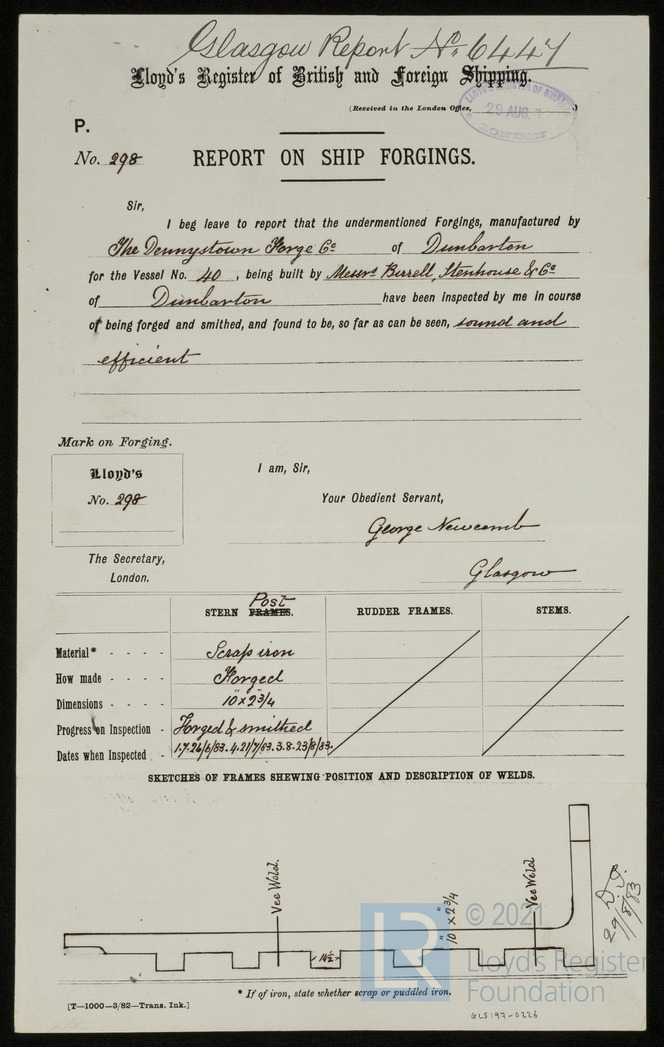 Glasgow Report No. 6447
Lloyd's Register of British and Foreign Shipping.
(Received in the London Office, )
LLOYD'S REGISTER OF
29 AUG.
LONDON
P.
No. 298 REPORT ON SHIP FORGINGS.
Sir,
I beg leave to report that the undermentioned Forgings, manufactured by
The Dennystown Forge Co of Dunbarton
for the Vessel No. 40, being built by Messrs Birrell, Stenhouse & Co
of Dunbarton have been inspected by me in course
of being forged and smithed, and found to be, so far as can be seen, sound and
efficient
Mark on Forging.
Lloyd's
No. 298
I am, Sir,
Your Obedient Servant,
George Newcomb
Glasgow
The Secretary,
London.
Post
STERN FRAMES. RUDDER FRAMES. STEMS.
Material* - - - - Scrap iron
How made - - - - Forged
Dimensions - - - - 10" x 2 3/4"
Progress on Inspection - Forged & smithed
Dates when Inspected - 1.7.26/6/83.4.21/7/83.3.8.23/8/83.
SKETCHES OF FRAMES SHEWING POSITION AND DESCRIPTION OF WELDS.
Vee Weld.
Vee Weld
10" x 2 3/4
14½
29/8/83
© 2021
LR
Lloyd's Register
Foundation
* If of iron, state whether scrap or puddled iron.
[T—1000—3/82—Trans. Ink.]
GLS197-0226